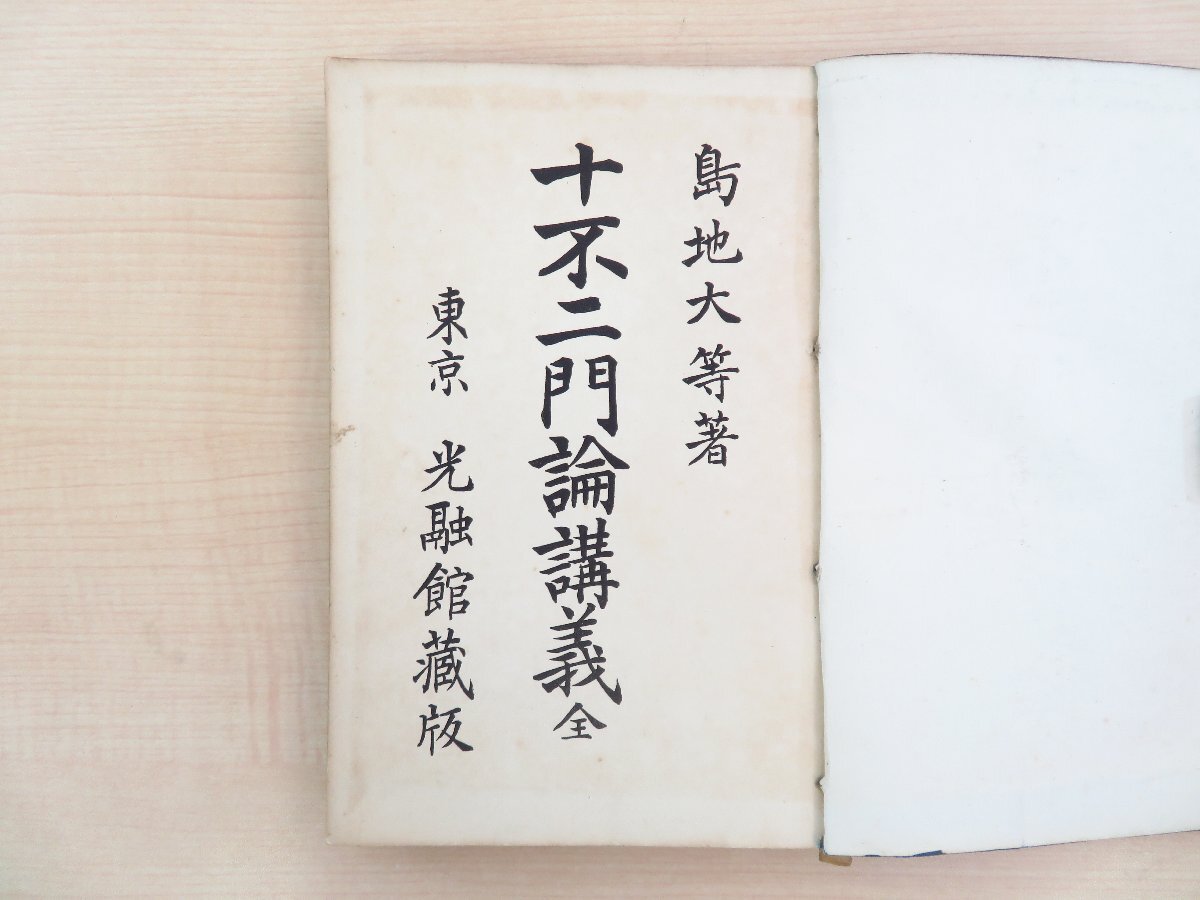 島地大等著
十不二門論講義全
東京 光融館藏版